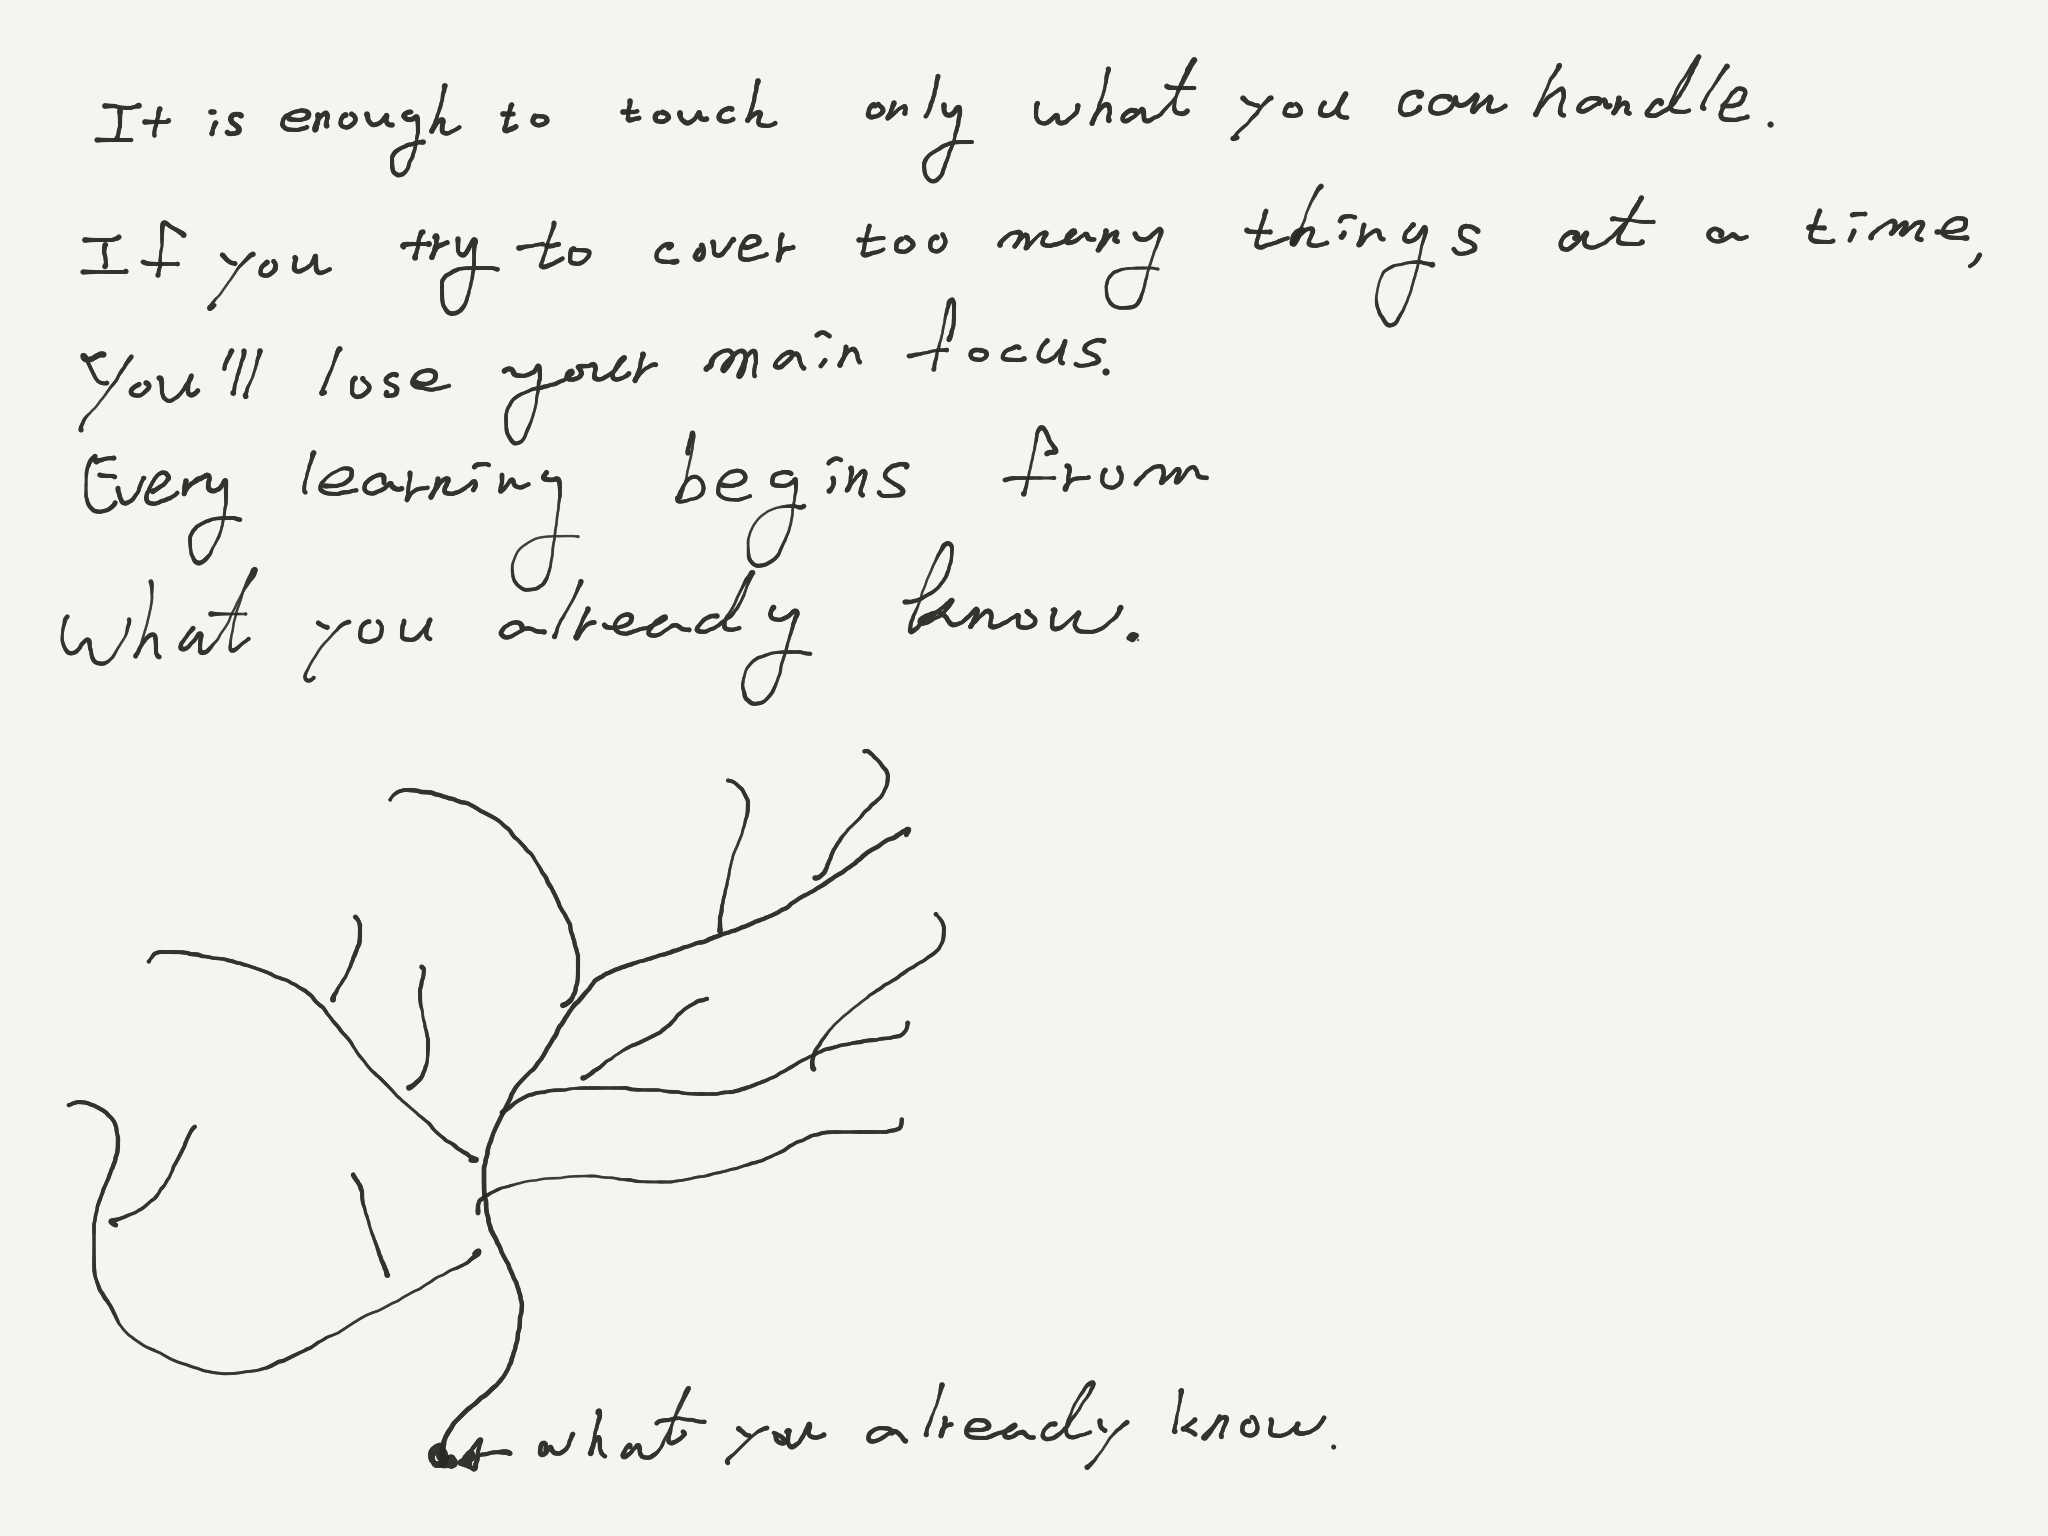 It is enough to touch only what you can handle.
If you try to cover too many things at a time,
You'll lose your main focus.
Every learning begins from
what you already know.
what you already know.